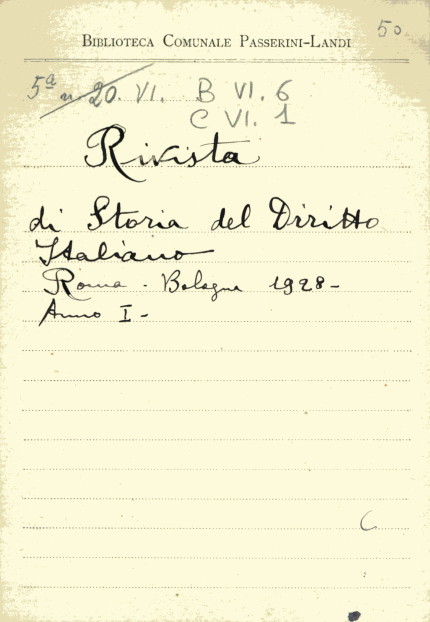 50
BIBLIOTECA COMUNALE PASSERINI-LANDI
5ª n. 20. VI. B VI. 6
C VI. 1
Rivista
di Storia del Diritto
Italiano
Roma - Bologna 1928-
Anno I-
C